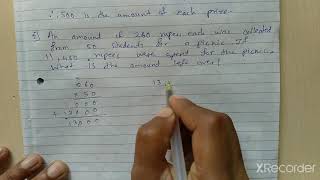 ∴ 500 is the amount of each prize
5) An amount of 260 rupees each was collected
from 50 students for a picnic. If
11,450 rupees were spent for the picnic,
What is the amount left over?
260
× 50
000
+ 13000
13000
13
XRecorder